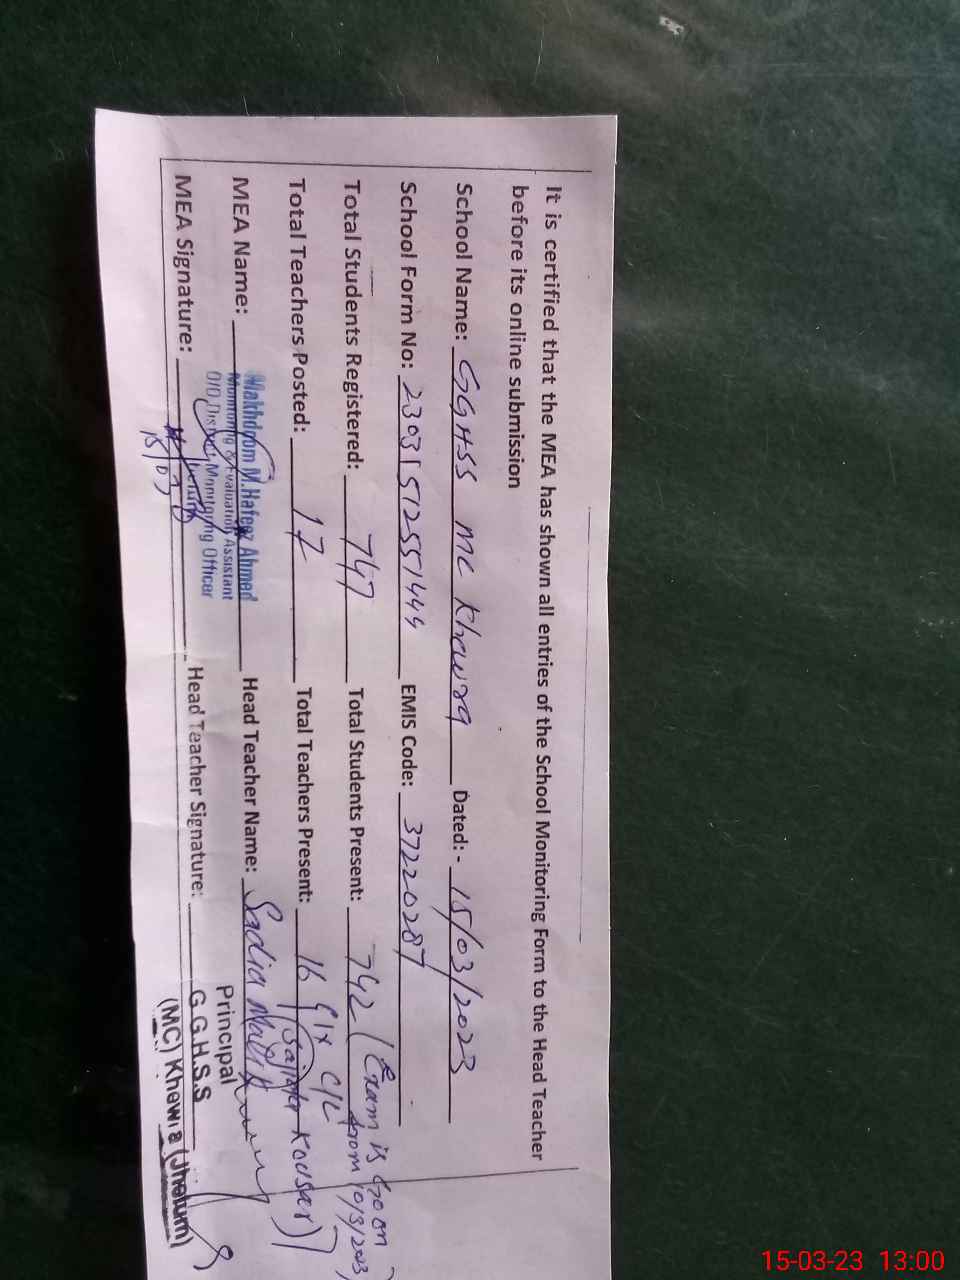 It is certified that the MEA has shown all entries of the School Monitoring Form to the Head Teacher
before its online submission
School Name: GGHSS MC Khewra Dated: - 15/03/2023
School Form No: 23031512551449 EMIS Code: 37220287
Total Students Registered: 747 Total Students Present: 742 (Exam is Go on from 10/3/2023)
Total Teachers Posted: 17 Total Teachers Present: 16 (1x C/L (Sajida Kousar))
MEA Name: Makhdoom M.Hafeez Ahmed Head Teacher Name: Sadia Malik
Monitoring & Evaluation Assistant
O/O District Monitoring Officer
Jhelum
MEA Signature: Head Teacher Signature:
15/03
Principal
G.G.H.S.S
(MC) Khewra (Jhelum)
15-03-23 13:00